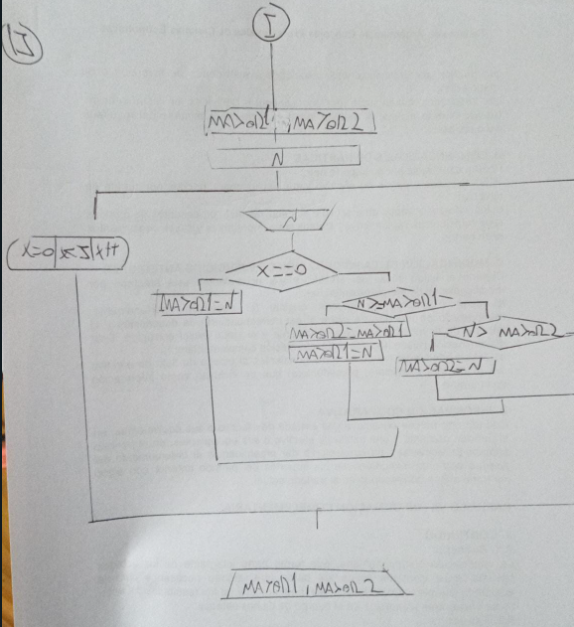 I
MAYOR1, MAYOR2
N
N
X=0 X<5 X++
X==0
MAYOR1=N
N>=MAYOR1
MAYOR2=MAYOR1
MAYOR1=N
N> MAYOR2
MAYOR2=N
MAYOR1, MAYOR2